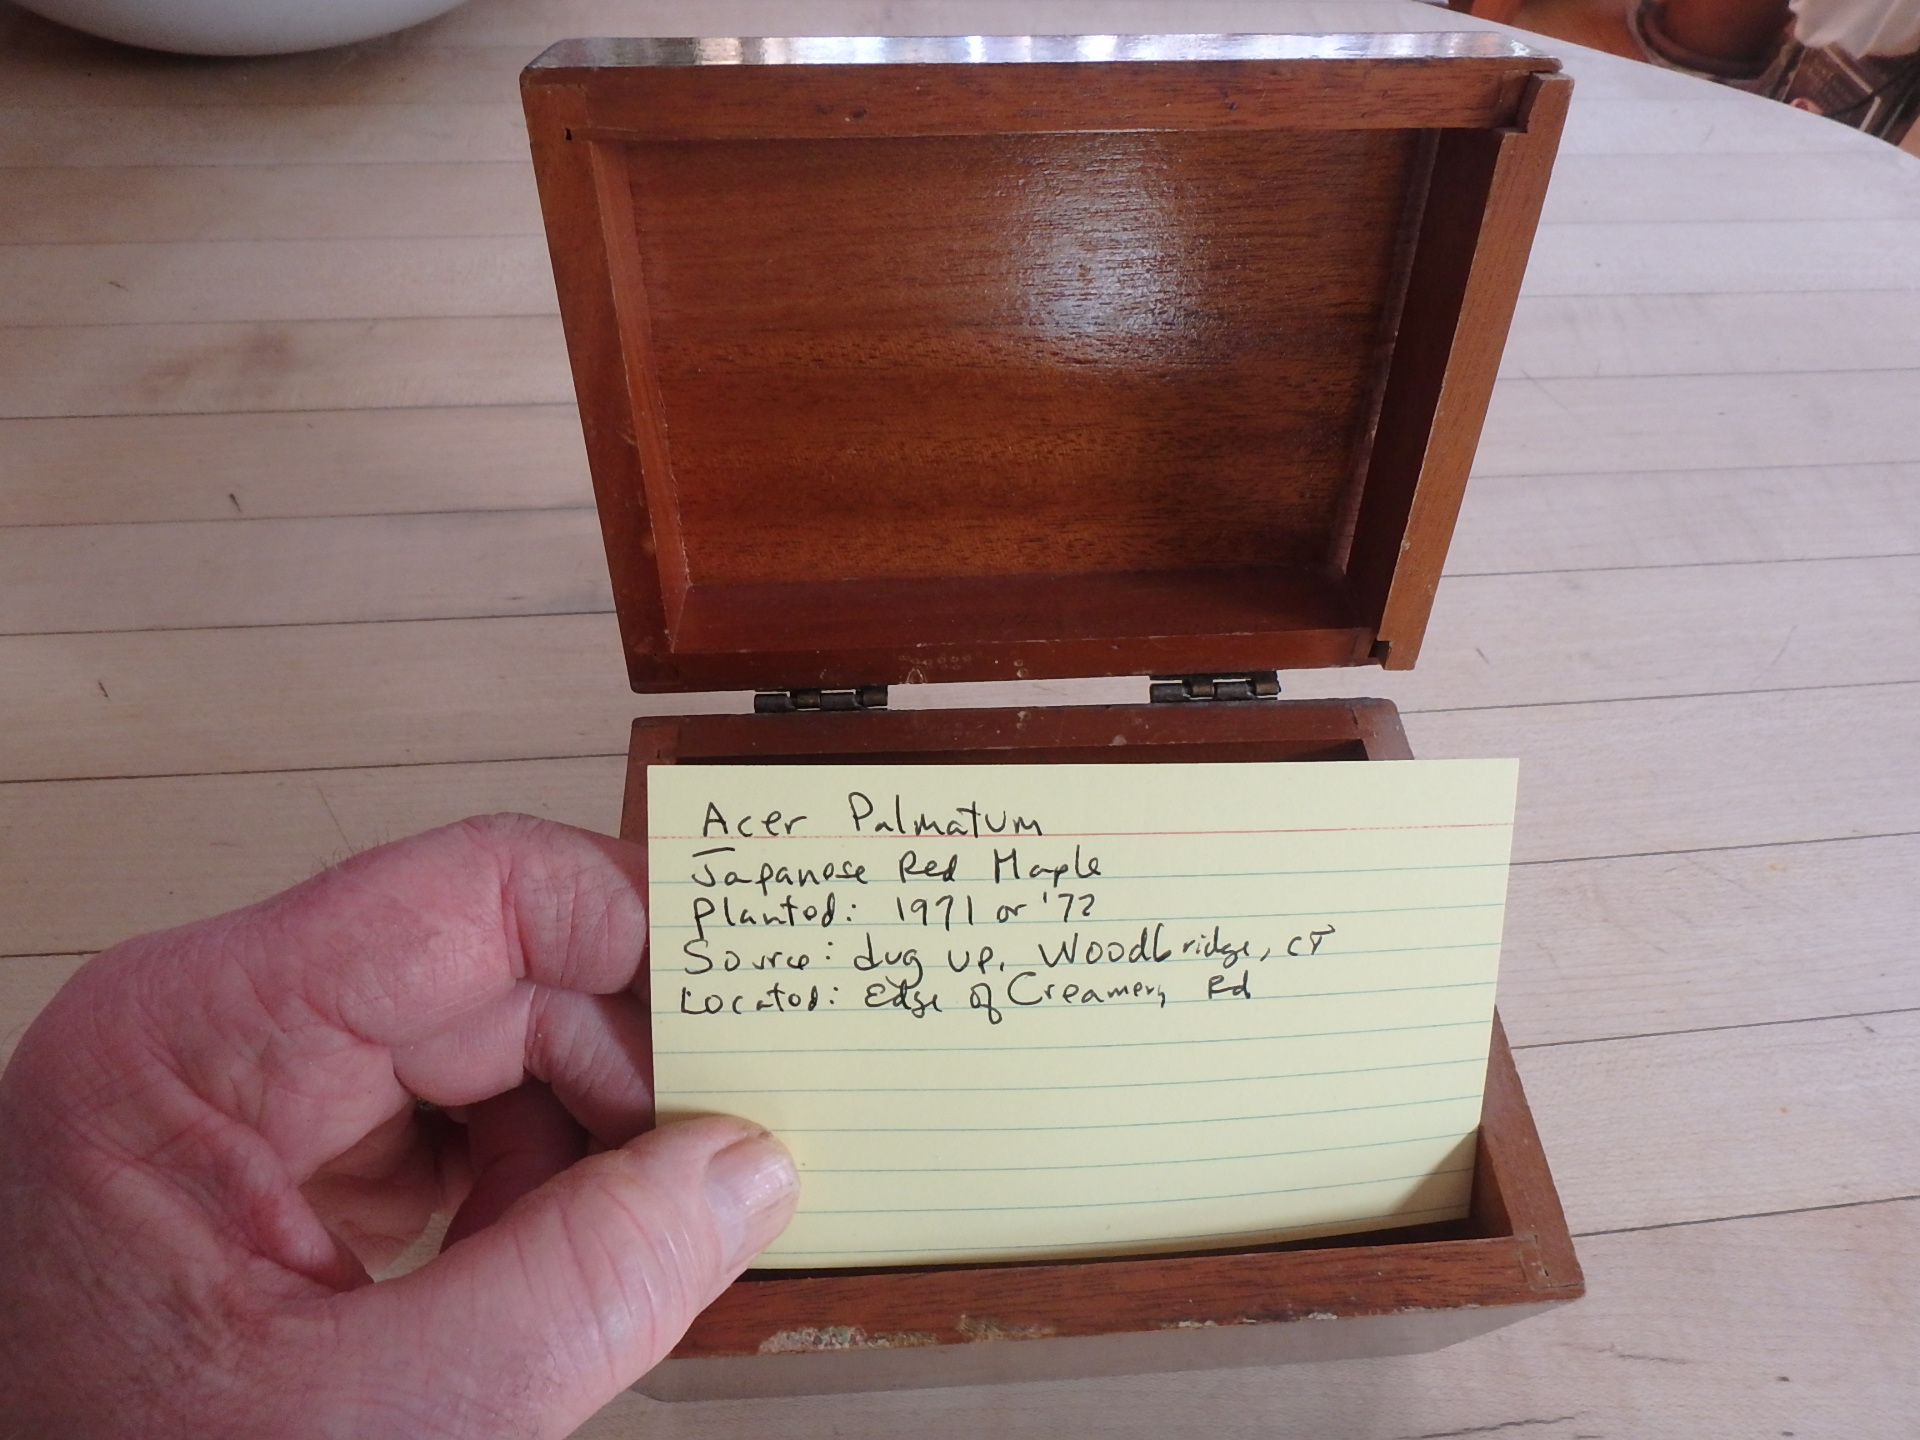 Acer Palmatum
Japanese Red Maple
Planted: 1971 or '72
Source: dug up, Woodbridge, CT
Located: Edge of Creamery Rd